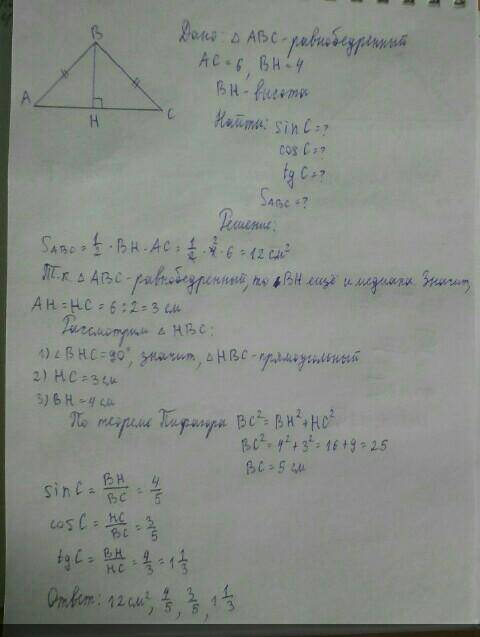 B
A
C
H
Дано: △ABC-равнобедренный
AC=6, BH=4
BH-высота
Найти: sinC=?
cosC=?
tgC=?
S_ABC=?
Решение:
S_ABC = 1/2 · BH · AC = 1/2 · 4 · 6 = 12 см²
Т.к. △ABC-равнобедренный, то BH ещё и медиана. Значит,
AH=HC=6:2=3 см
Рассмотрим △HBC:
1) ∠BHC=90°, значит, △HBC-прямоугольный
2) HC=3см
3) BH=4см
По теореме Пифагора BC²=BH²+HC²
BC²=4²+3²=16+9=25
BC=5 см
sinC = BH/BC = 4/5
cosC = HC/BC = 3/5
tgC = BH/HC = 4/3 = 1 1/3
Ответ: 12см², 4/5, 3/5, 1 1/3